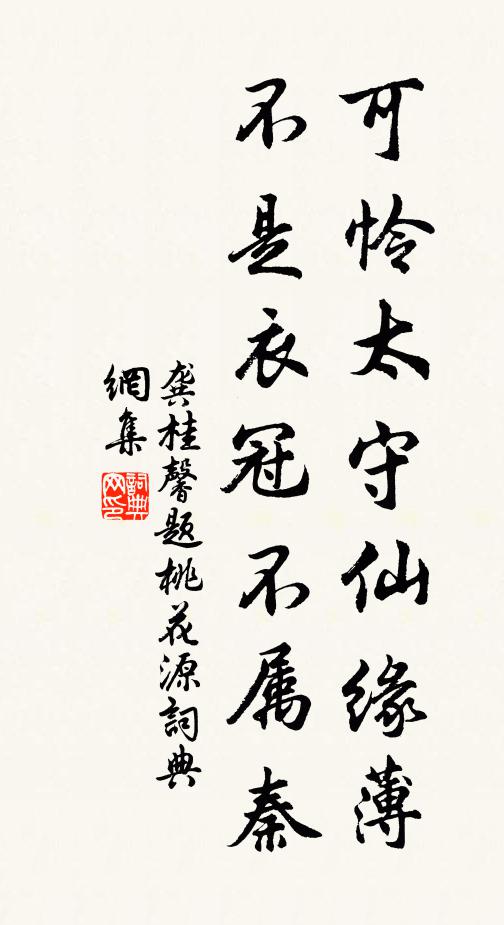 可怜太守仙缘薄
不是衣冠不属秦
龚桂馨题桃花源詞典
網集
詞典
网印